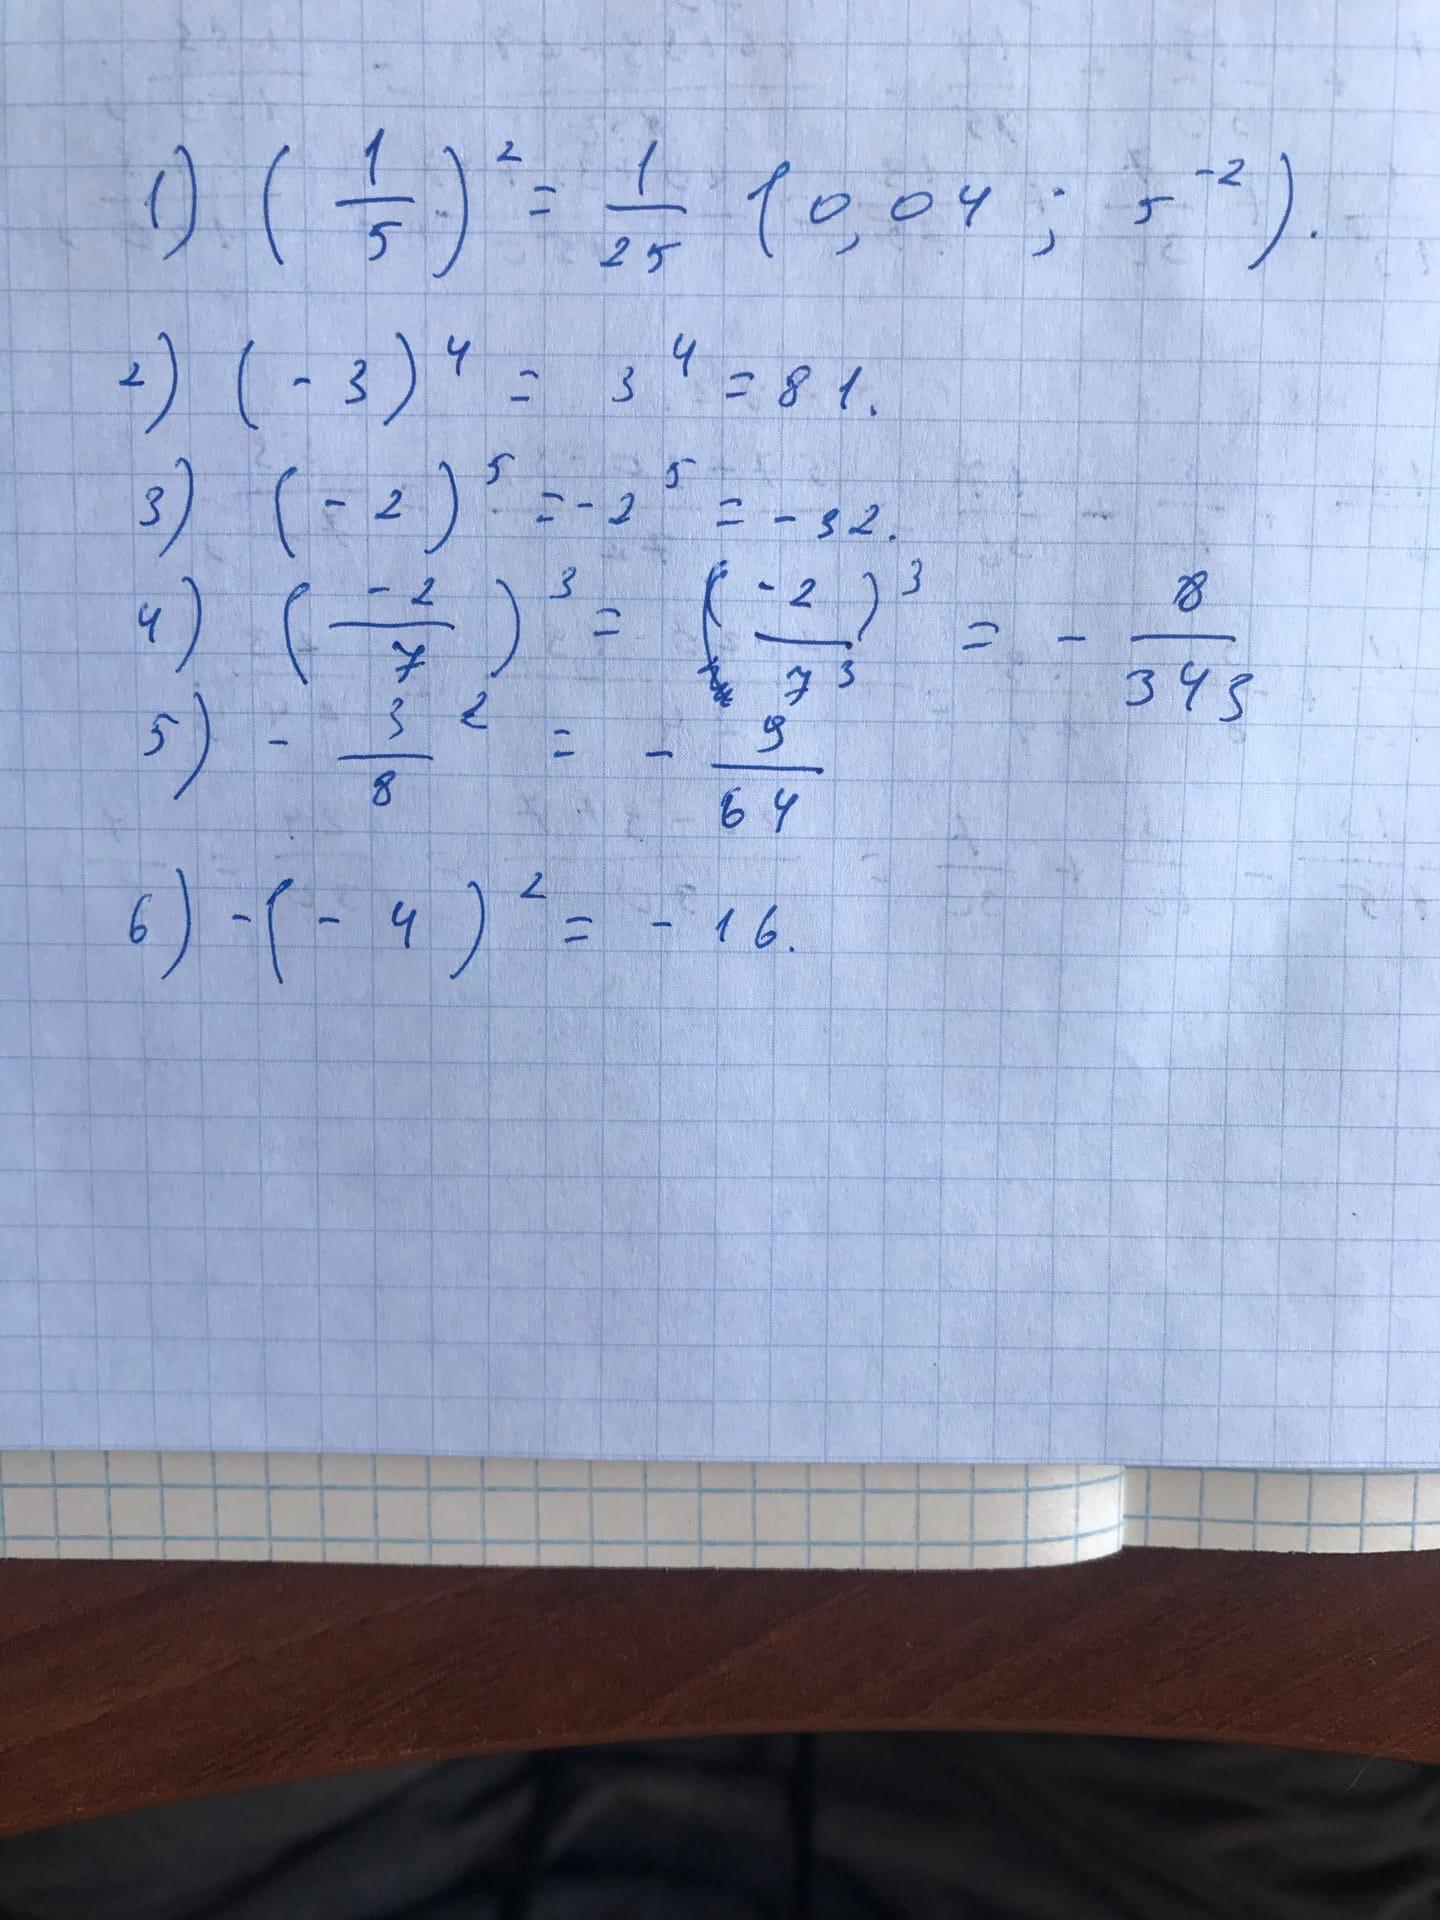 1) (1/5)² = 1/25 (0,04 ; 5⁻²).
2) (-3)⁴ = 3⁴ = 81.
3) (-2)⁵ = -2⁵ = -32.
4) (-2/7)³ = (-2)³/7³ = -8/343
5) -3²/8 = -9/64
6) -(-4)² = -16.